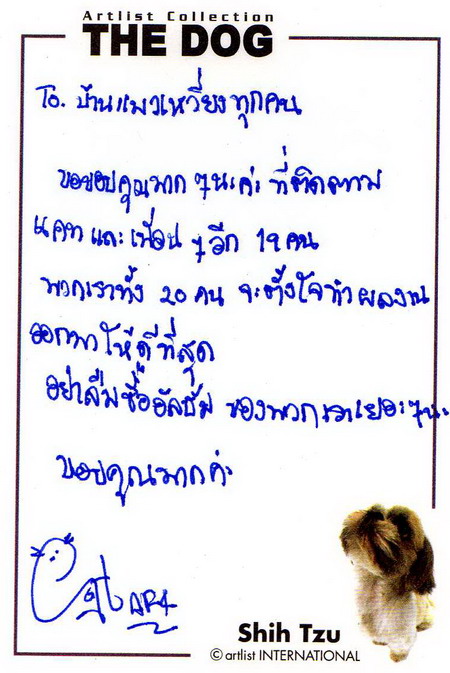 Artlist Collection
THE DOG
To. บ้านแมวเหวี่ยงทุกคน
ขอบคุณมาก ๆ นะค่ะ ที่ติดตาม
แคท และ เพื่อน ๆ อีก 19 คน
พวกเราทั้ง 20 คน จะตั้งใจทำผลงาน
ออกมาให้ดีที่สุด
อย่าลืมซื้ออัลบั้ม ของพวกเราเยอะๆนะ
ขอบคุณมากค่ะ
Shih Tzu
© artlist INTERNATIONAL